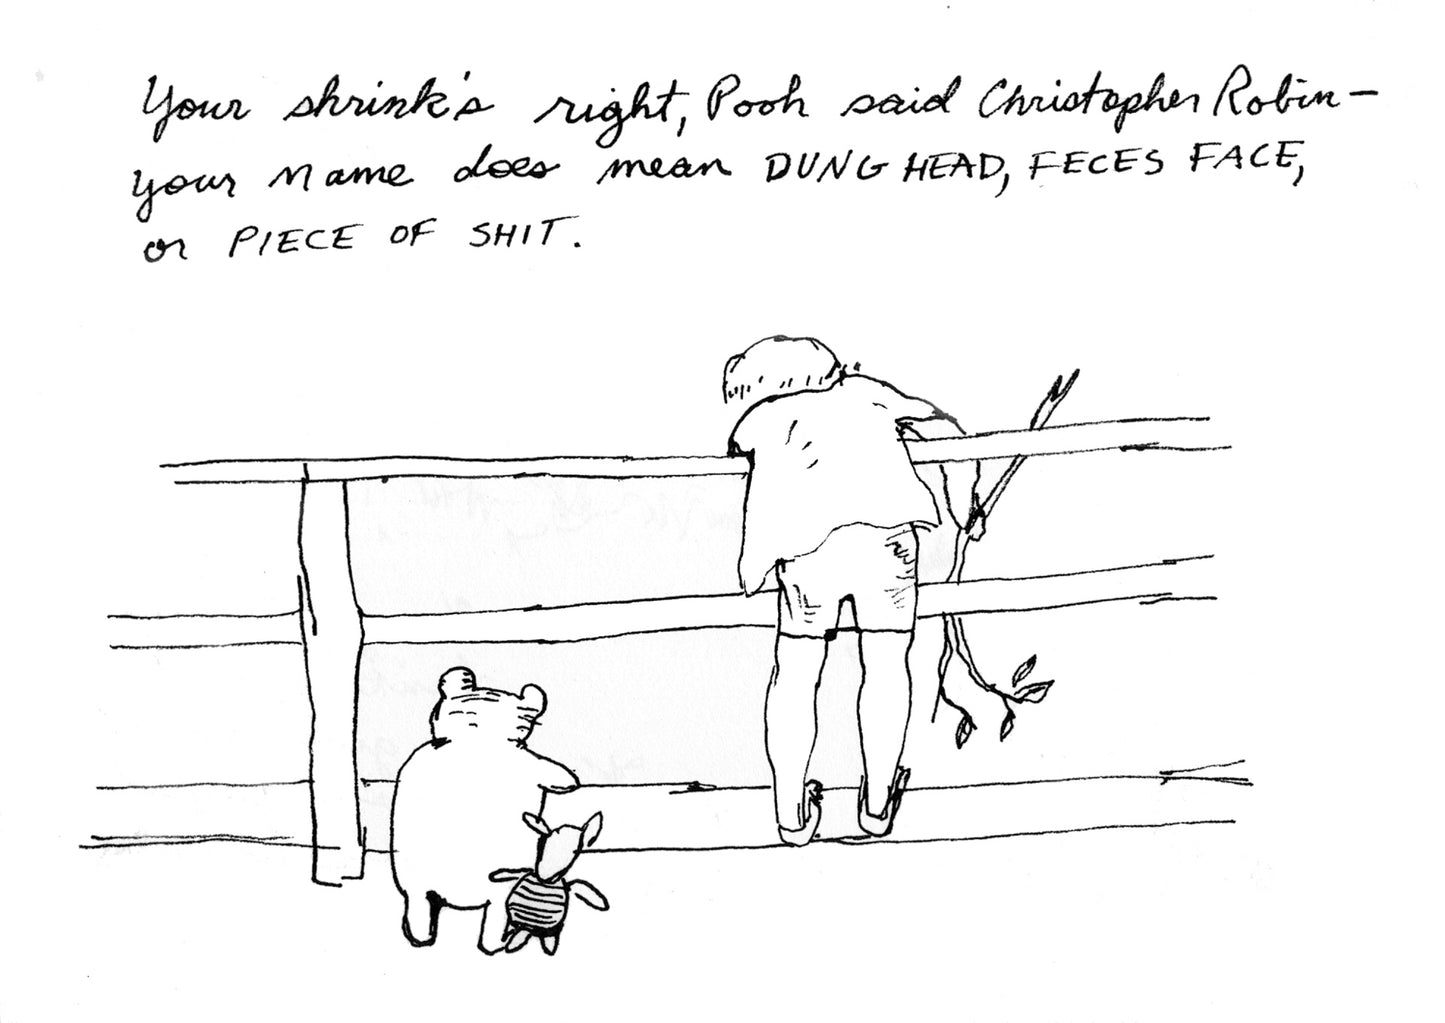 Your shrink's right, Pooh said Christopher Robin—
your name does mean DUNG HEAD, FECES FACE,
or PIECE OF SHIT.